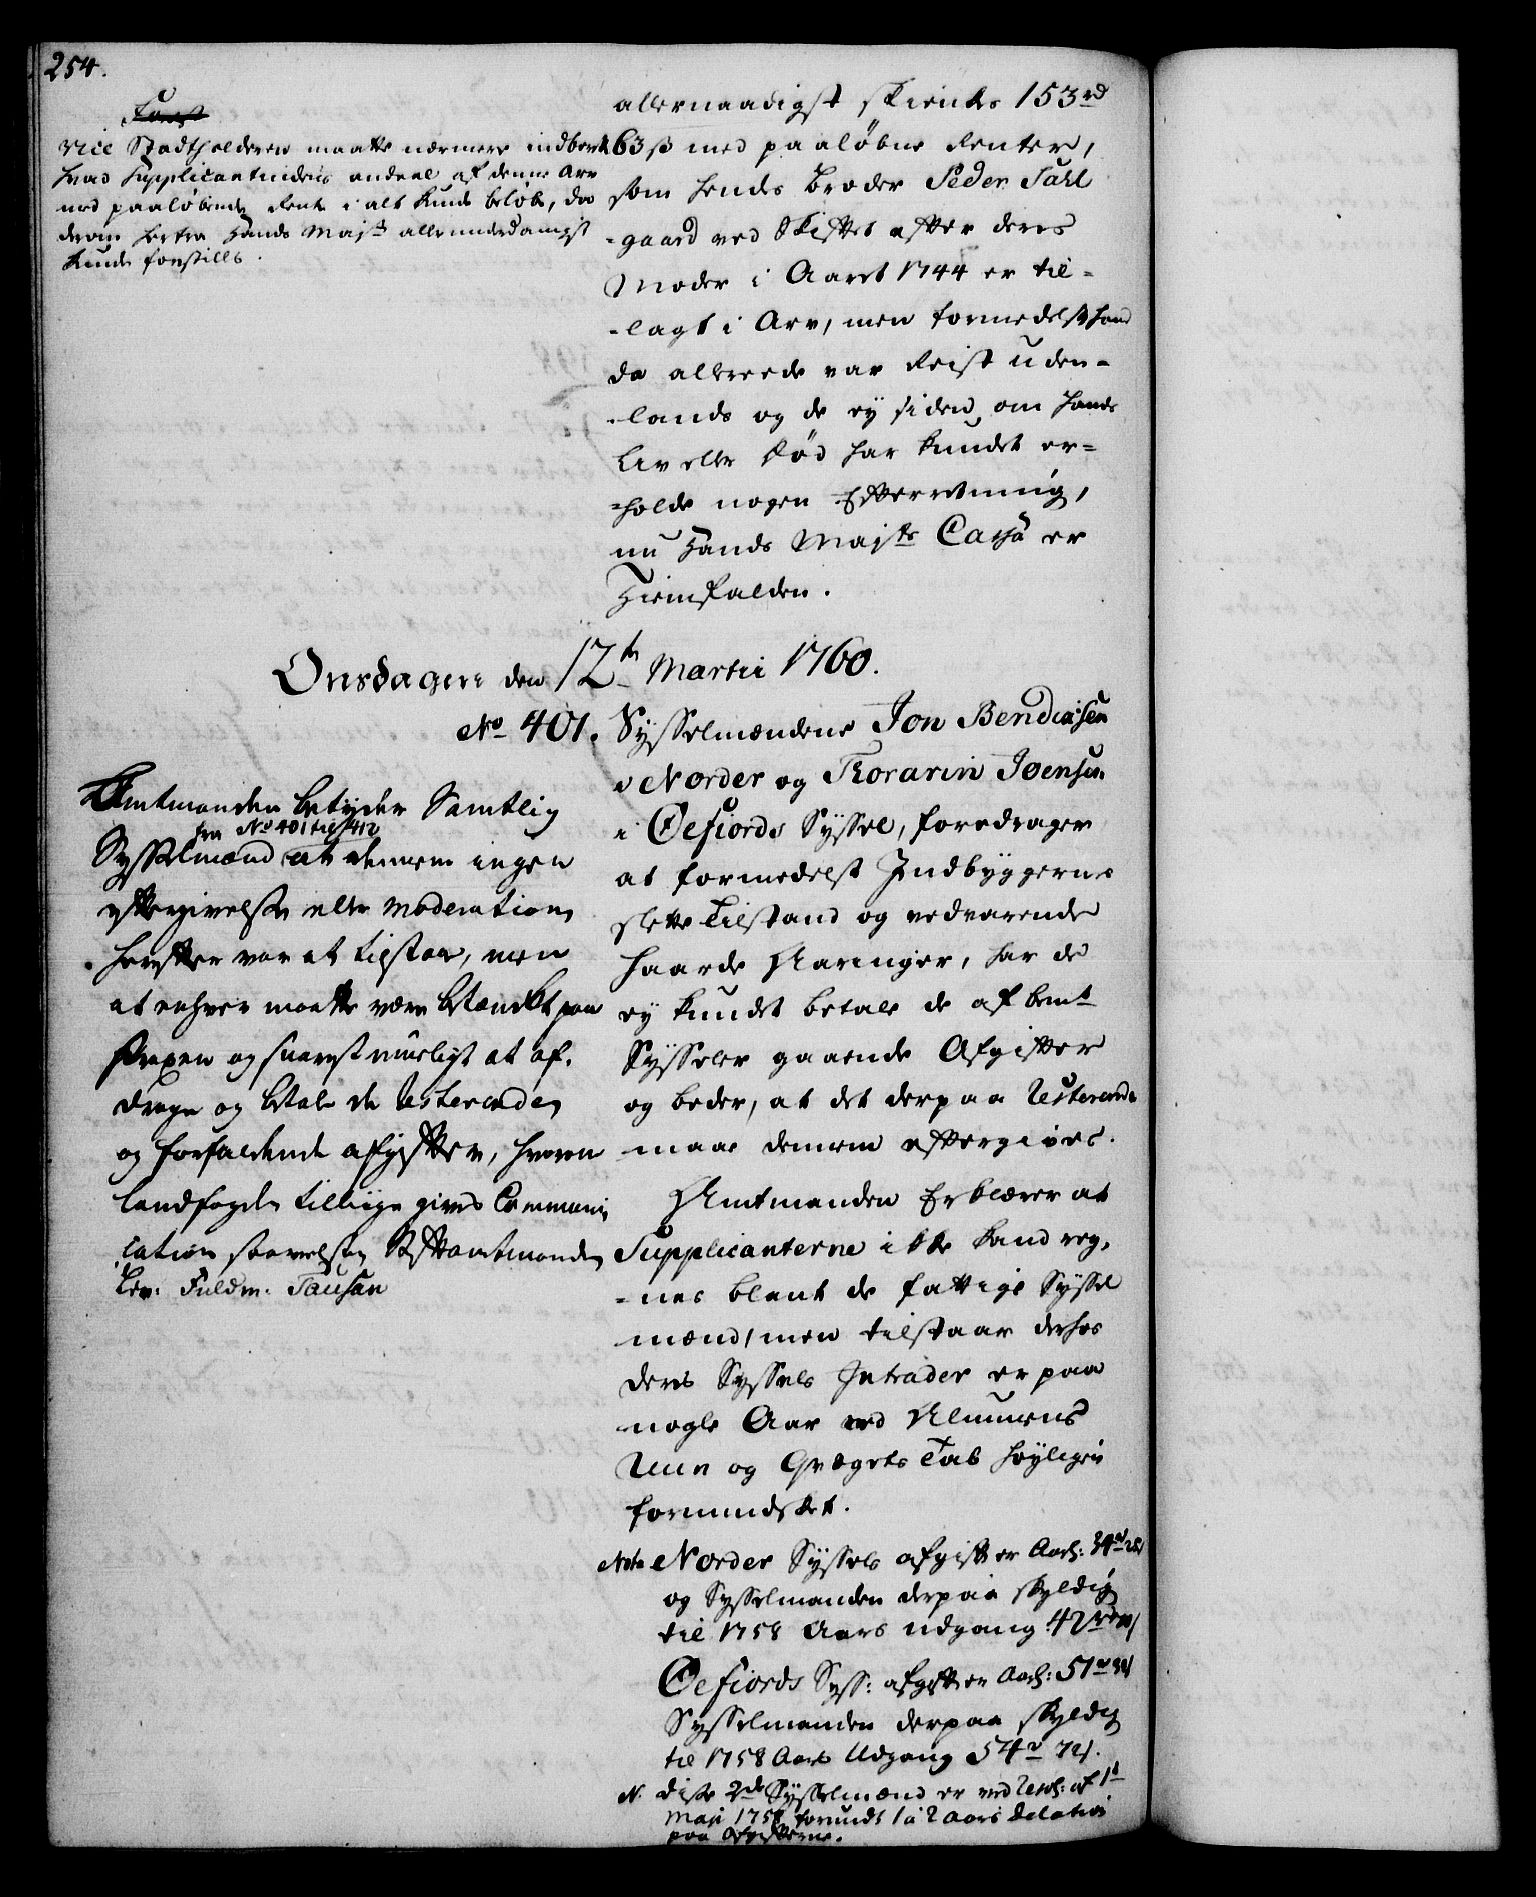 254.
Vice Stadtholderen maatte nærmere indberette
hvad Supplicantindens andeel af denne Arv
med paaløbende Rente i alt kunde beløbe, da
derom herfra Hands Mayts allerunderdanigst
kunde forestilles.
allernaadigst skienkes 153 rd
63 ß med paaløbne Renter,
som hendes Broder Peder Dahl
-gaard ved Skiftet efter deres
Moder i Aaret 1744 er til-
-lagt i Arv, men formedelst hand
da allerede var Reist uden-
-lands og de ey siden om hands
Liv eller Død har kundet er-
-holde nogen Efterretning,
nu Hands Mayts Cassa er
Hiemfalden.
Onsdagen den 12te Martii 1760.
No 401.
Sysselmændene Jon Bendixsen
i Norder og Thorarin Joensen
i Øefiords Syssel, foredrager
at formedelst Indbyggernes
slette Tilstand og vedvarende
haarde Aaringer, har de
ey kundet betale de af bemte
Sysseler gaaende Afgifter
og beder, at det derpaa Resterende
maae dennem eftergives.
Amtmanden Erklærer at
Supplicanterne ikke kand reg-
-nes blant de fattige Syssel
mænd, men tilstaar derhos
deres Syssels Intrader er paa
nogle Aar ved Almuens
Ruin og Qvægets Tab høyligen
formindsket.
Nota Norder Syssels afgift er Aarl: 34 rd
og Sysselmanden derpaa skyldig
til 1758 Aars udgang 42 rd
Øefiords Syss: afgift er Aarl: 51 rd
Sysselmanden derpaa skyldig
til 1758 Aars Udgang 54 rd 72 ß.
N. disse 2de Sysselmænd er ved Resol: af 1te
Maji 1758 forundt 1 à 2 Aars Delation
paa Afgifterne.
Amtmanden betyder Samtlig
fra No 401 til 412
Sysselmænd at dennem ingen
eftergivelse eller Moderation
herefter var at tilstaa, men
at enhver maatte være betænkt paa
strax og snarest mueligt at af-
drage og betale de Resterende
og forfaldende afgifter, hvorom
landfogden tillige gives Communi
cation saavelsom Stiftamtmanden
Lev: Fuldm. Tausan